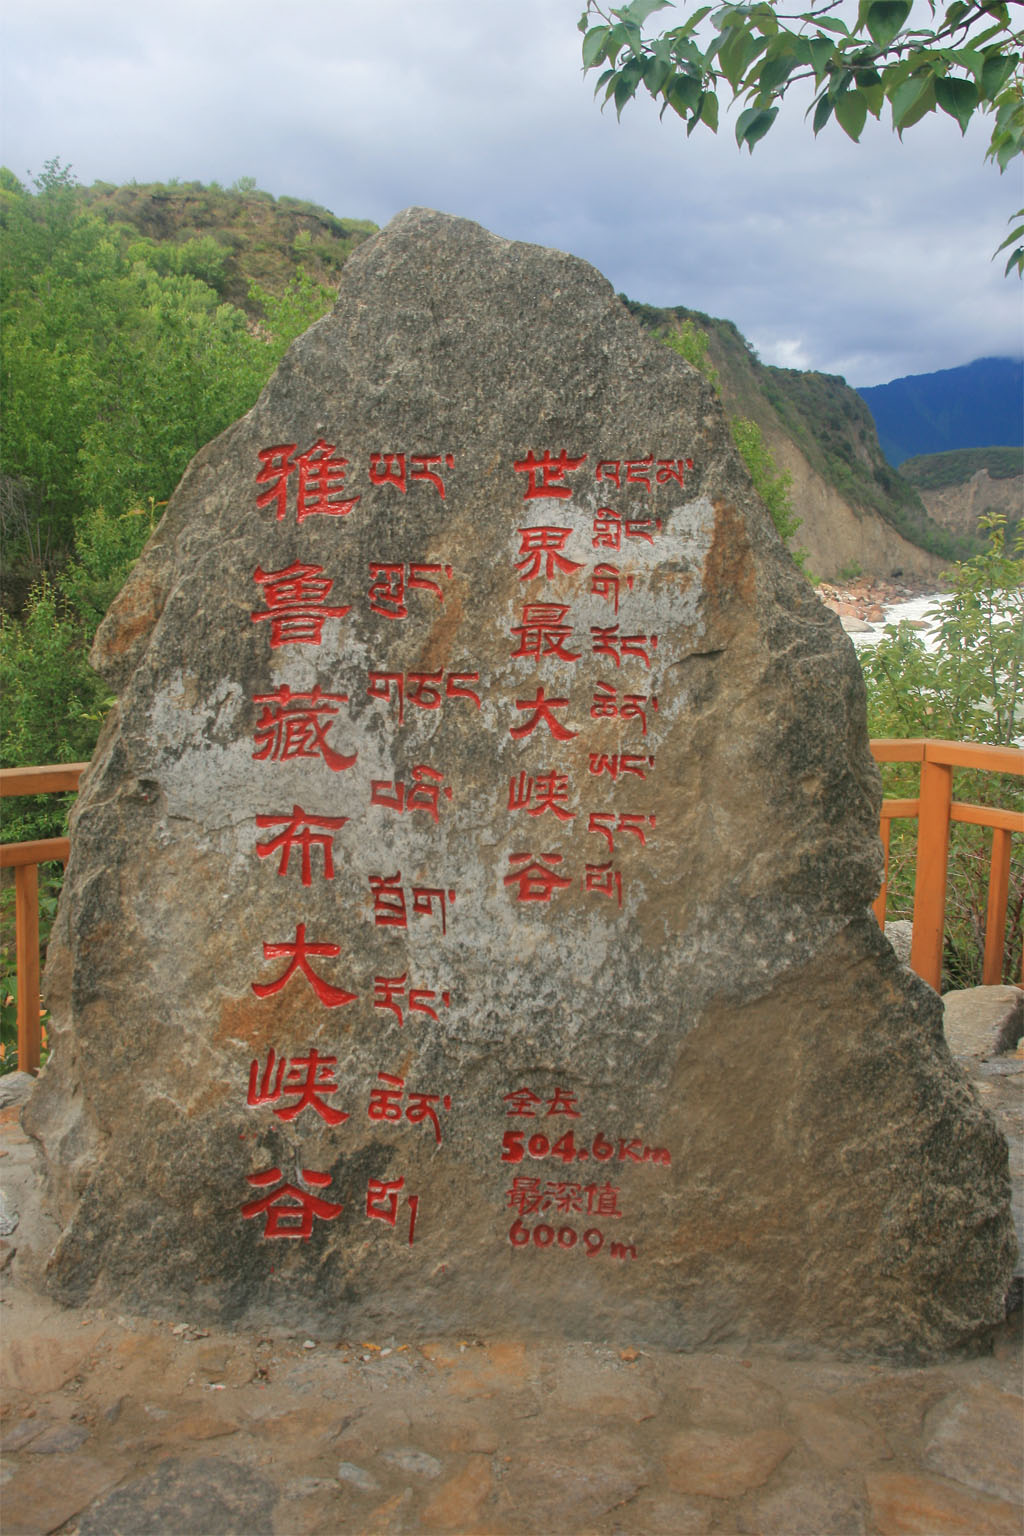 世界最大峡谷
འཛམ་གླིང་གི་རོང་ཆེན་ཡང་དང་པོ།
雅鲁藏布大峡谷
ཡར་ཀླུང་གཙང་པོའི་གྲོག་རོང་ཆེན་པོ།
全长
504.6Km
最深值
6009m